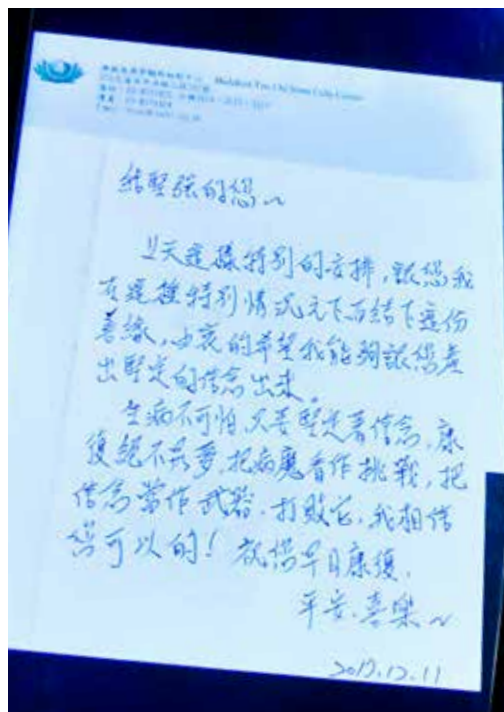 Buddhist Tzu Chi Stem Cells Center
給堅強的您～
上天這樣特別的安排，讓您我
在這種特別情況之下而結下這份
善緣，由衷的希望我能夠讓您產
出堅定的信念出來。
生病不可怕，只要堅定著信念，康
復絕不是夢，把病魔看作挑戰，把
信念當作武器，打敗它，我相信
您可以的！祝您早日康復，
平安、喜樂～
2017.12.11